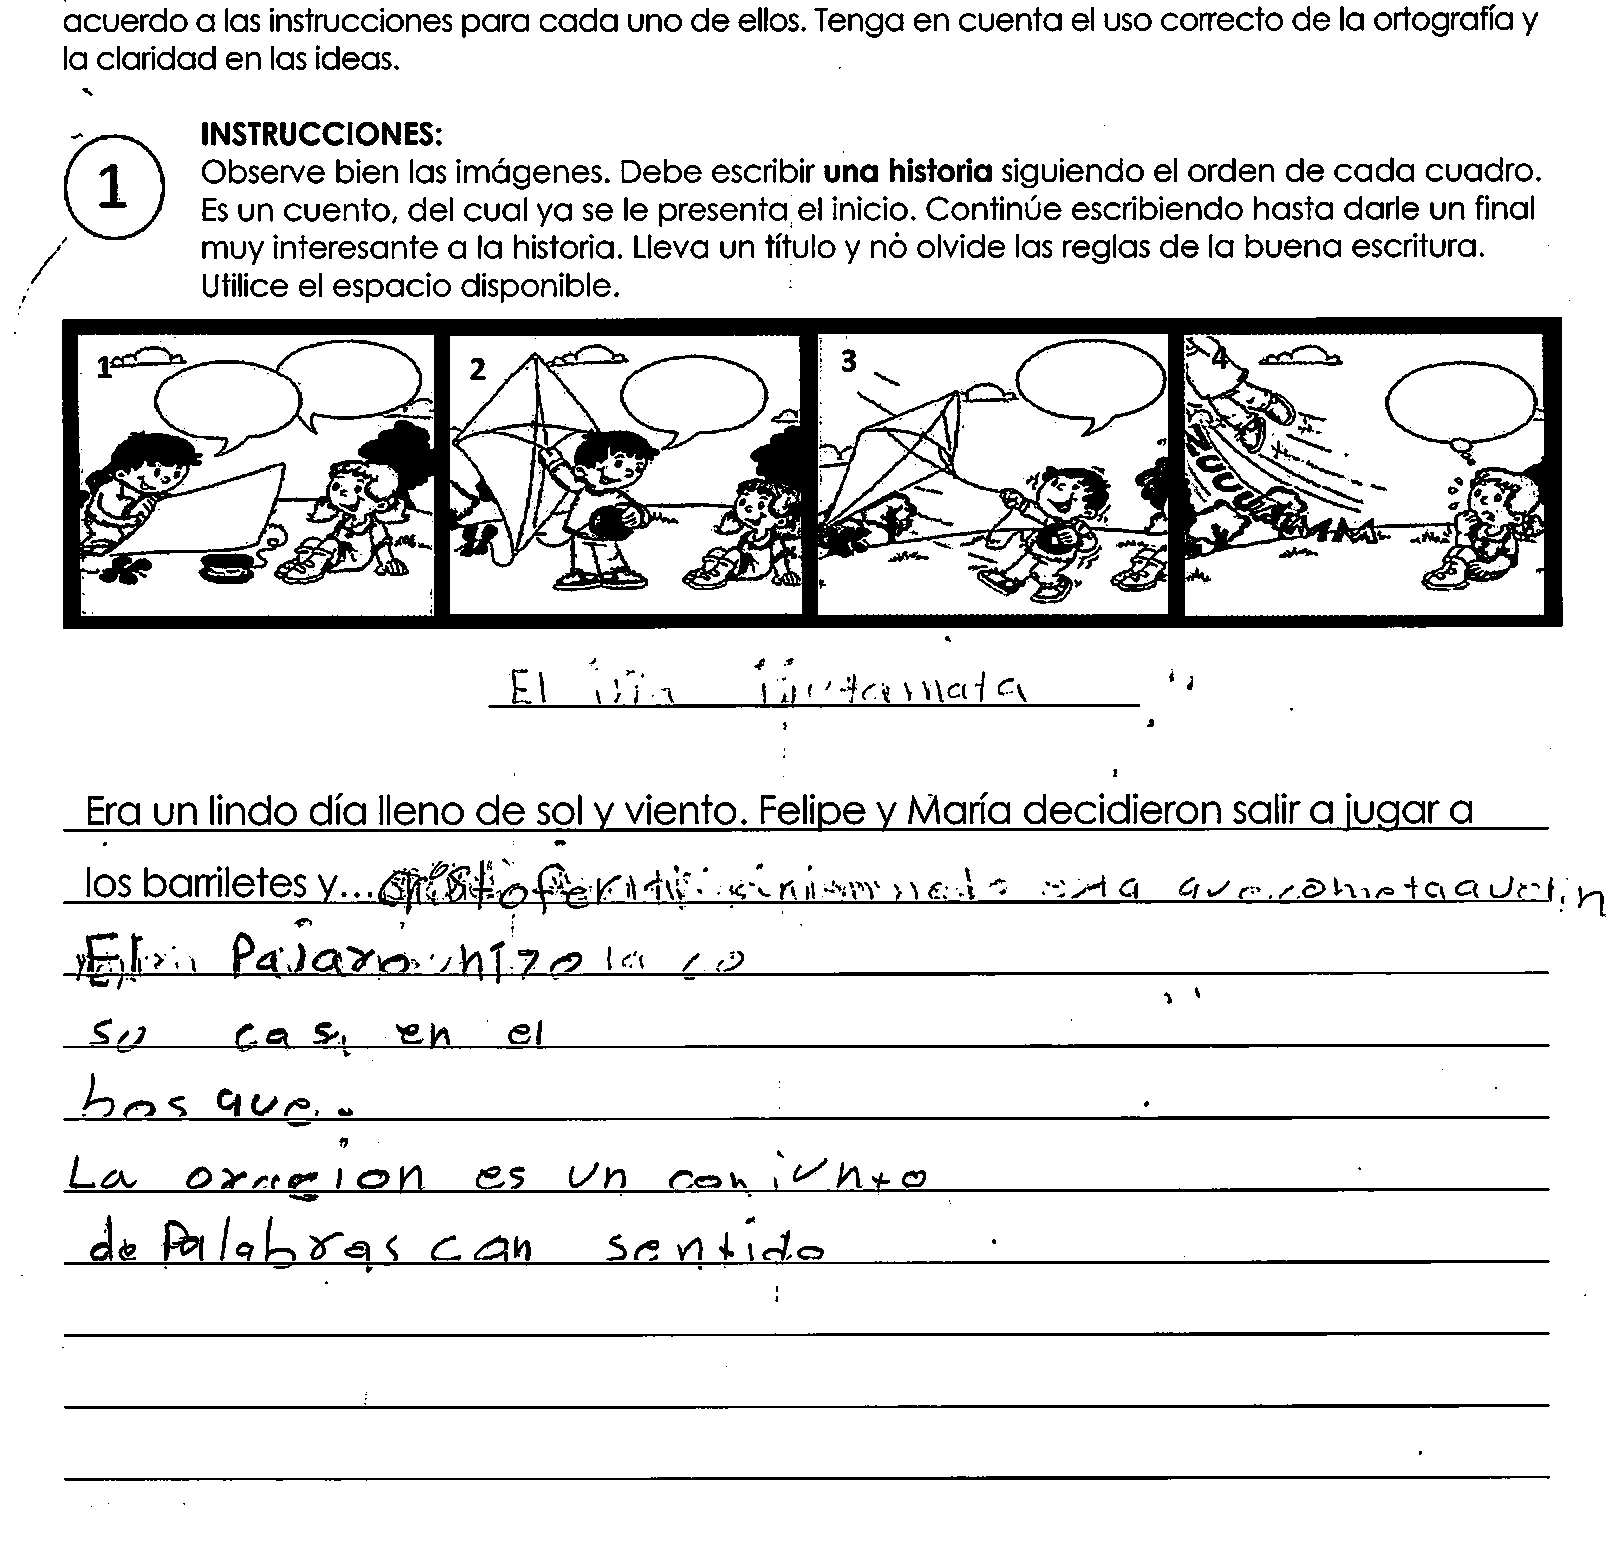 acuerdo a las instrucciones para cada uno de ellos. Tenga en cuenta el uso correcto de la ortografía y
la claridad en las ideas.
1
INSTRUCCIONES:
Observe bien las imágenes. Debe escribir una historia siguiendo el orden de cada cuadro.
Es un cuento, del cual ya se le presenta el inicio. Continúe escribiendo hasta darle un final
muy interesante a la historia. Lleva un título y no olvide las reglas de la buena escritura.
Utilice el espacio disponible.
1 2 3 4
El
Era un lindo día lleno de sol y viento. Felipe y María decidieron salir a jugar a
los barriletes y...
El Pajaro hizo la
su en el
bosque.
La oracion es un conjunto
de Palabras can sentido